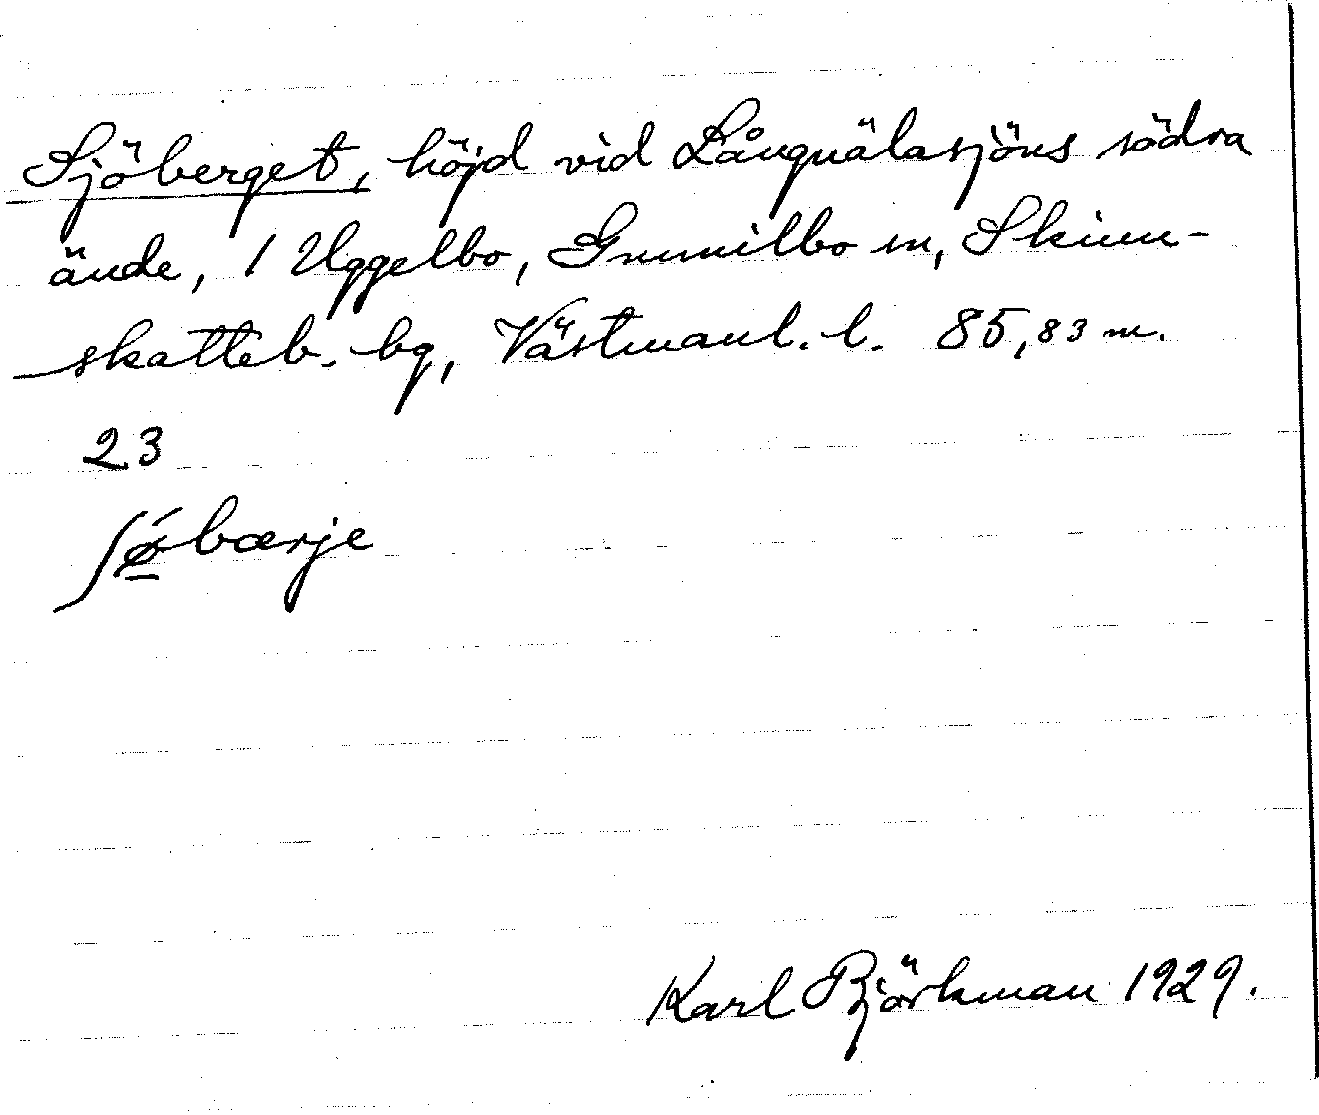 Sjöberget, höjd vid Långnälasjöns södra
ände, 1 Uggelbo, Gunnilbo sn, Skinn-
skatteb. bg, Västmanl. l. 85,83 m.
23
ʃǿ̱bærje
Karl Björkman 1929.